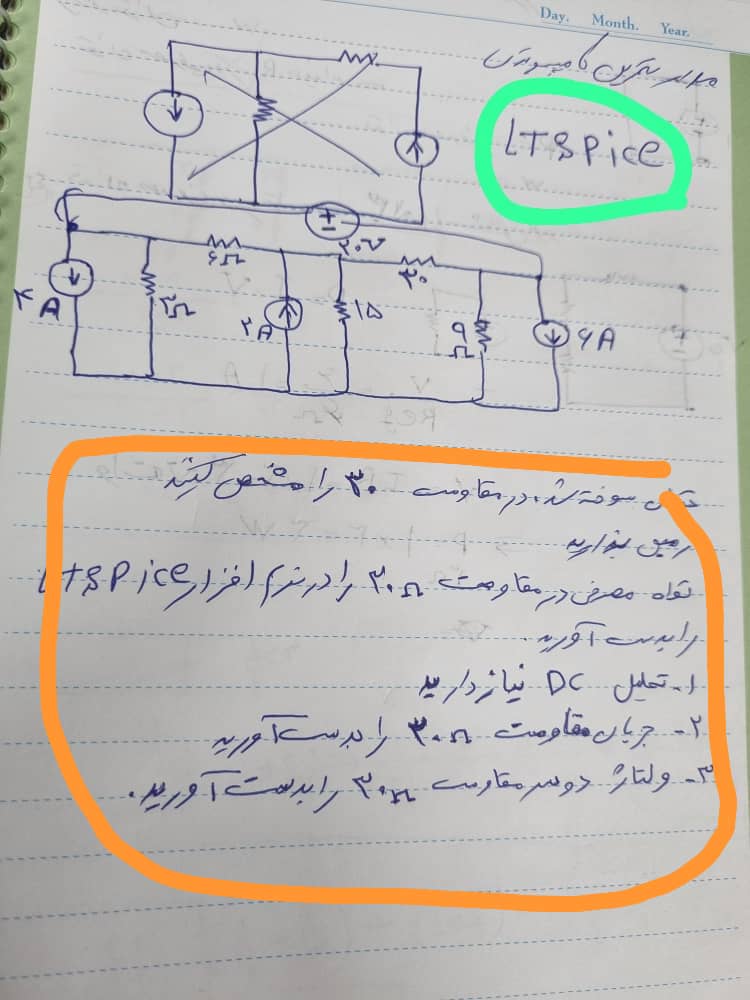 Day. Month. Year.
تمرین کامپیوتری
LTSpice
۲۰V
۶Ω
۳۰
۳Ω
۲A
۱۵
۹Ω
۶A
توان سوخته شده در مقاومت ۳۰ را مشخص کنید
زمین بزارید
توان مصرفی در مقاومت ۳۰Ω را در نرم افزار LTSpice
را بدست آورید.
۱- تحلیل DC نیاز دارید
۲- جریان مقاومت ۳۰Ω را بدست آورید
۳- ولتاژ دو سر مقاومت ۳۰Ω را بدست آورید.